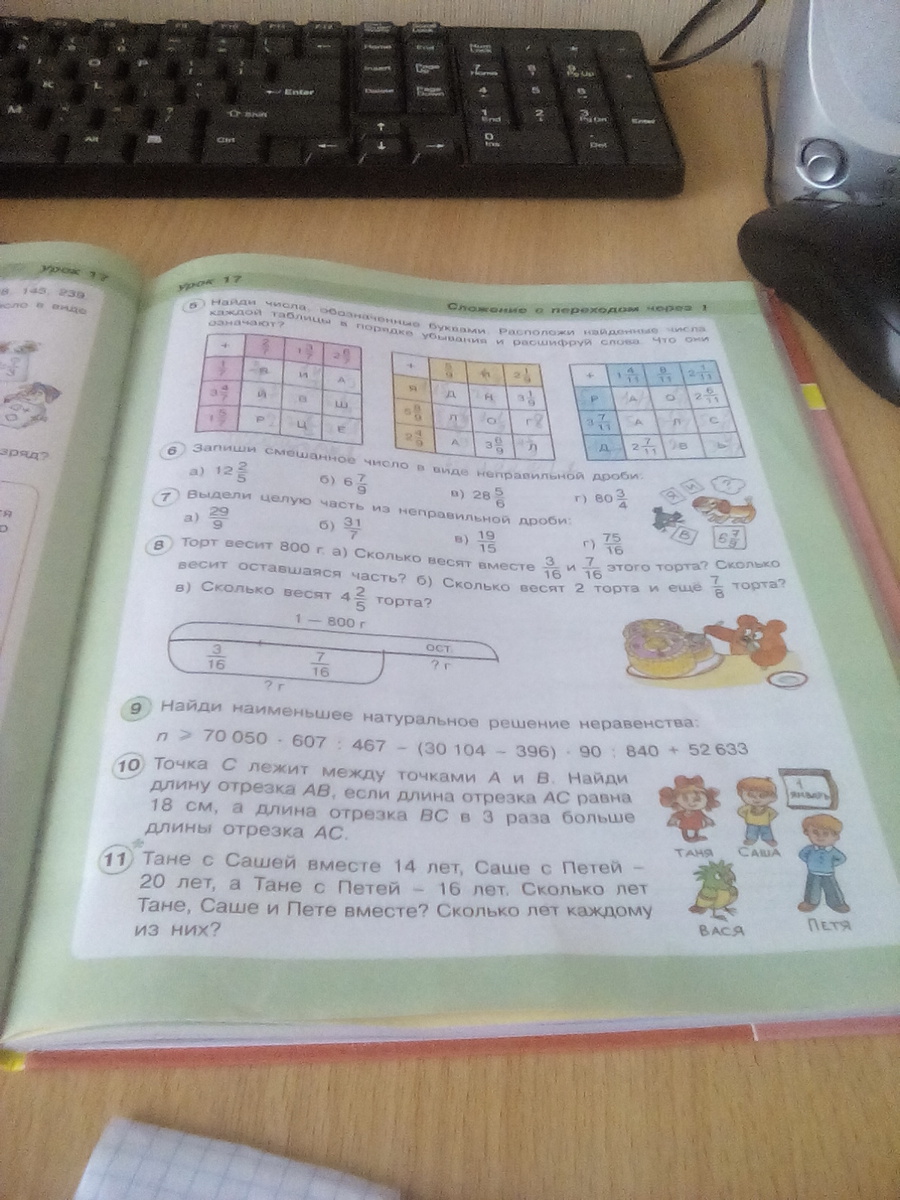 Num Lock
/
*
Home
End
Page Up
7 Home
8
9 Pg Up
+
Insert
Page Down
Delete
4
5
6
Enter
1 End
2
3 Pg Dn
Enter
Shift
0 Ins
Del
Alt
Ctrl
O P
K L
M
урок 17
145, 239.
число в виде
зряд?
урок 17
Сложение с переходом через 1
5 Найди числа, обозначенные буквами. Расположи найденные числа
каждой таблицы в порядке убывания и расшифруй слова. Что они
означают?
И А
Й В Ш
Р Ц Е
+ 5/9 Й 2 1/9
Я Д Н 3 1/9
Л О Г
2 4/9 А 3 8/9 Л
+ 1 4/11 8/11 2 1/11
Р А О 2 6/11
3 7/11 А Л С
Д 2 7/11 В Ь
6 Запиши смешанное число в виде неправильной дроби:
а) 12 2/5 б) 6 7/9 в) 28 5/6 г) 80 3/4
7 Выдели целую часть из неправильной дроби:
а) 29/9 б) 31/7 в) 19/15 г) 75/16
8 Торт весит 800 г. а) Сколько весят вместе 3/16 и 7/16 этого торта? Сколько
весит оставшаяся часть? б) Сколько весят 2 торта и ещё 7/8 торта?
в) Сколько весят 4 2/5 торта?
1 — 800 г
3/16 7/16 ост.
? г
? г
9 Найди наименьшее натуральное решение неравенства:
n ⩾ 70 050 · 607 : 467 – (30 104 – 396) · 90 : 840 + 52 633
10 Точка C лежит между точками A и B. Найди
длину отрезка AB, если длина отрезка AC равна
18 см, а длина отрезка BC в 3 раза больше
длины отрезка AC.
11* Тане с Сашей вместе 14 лет, Саше с Петей –
20 лет, а Тане с Петей – 16 лет. Сколько лет
Тане, Саше и Пете вместе? Сколько лет каждому
из них?
1 ЯНВАРЬ
ТАНЯ
САША
ВАСЯ
ПЕТЯ